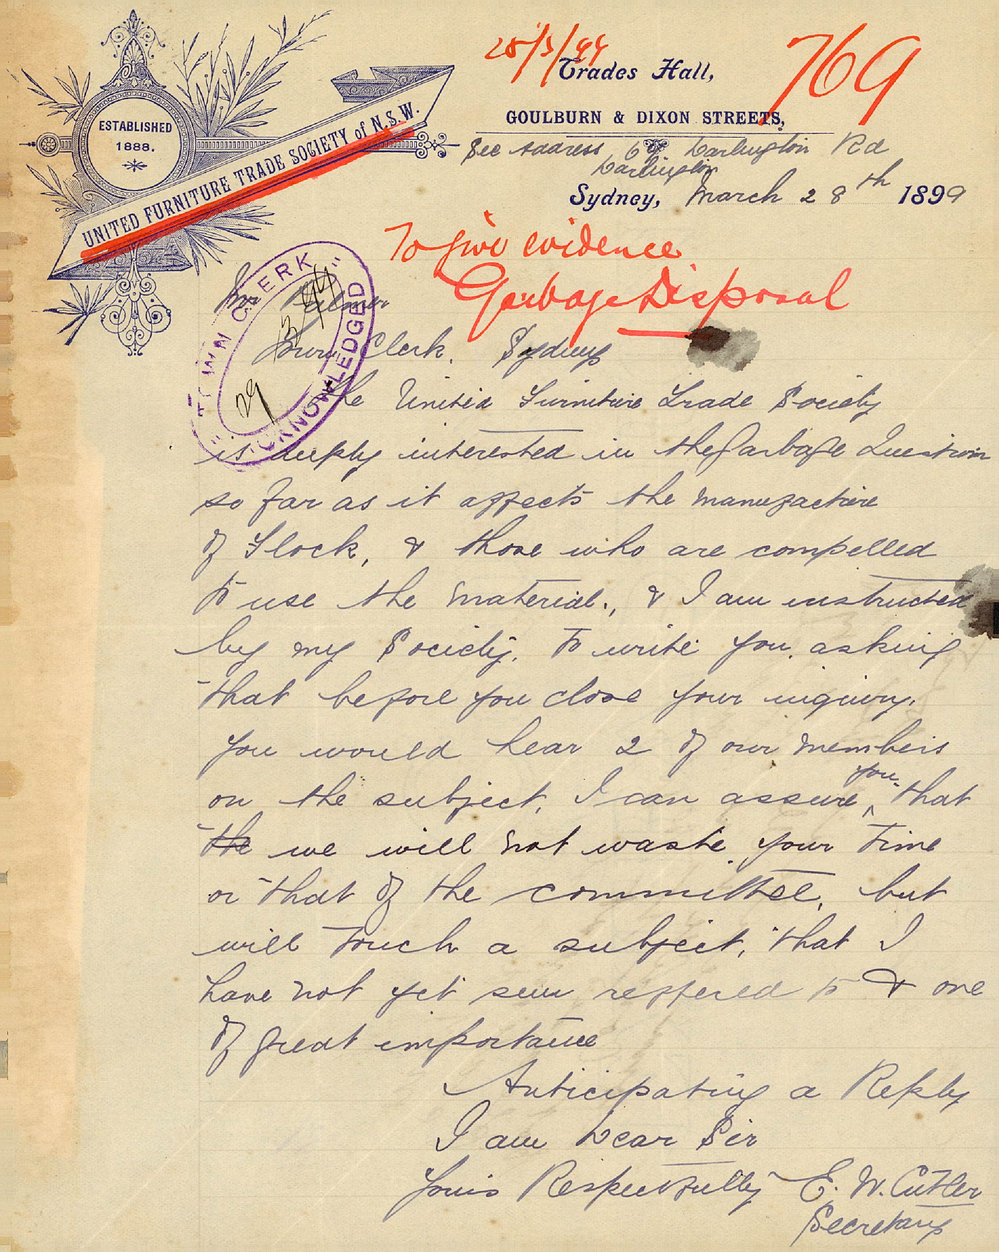 28/3/99
769
Trades Hall,
GOULBURN & DIXON STREETS,
ESTABLISHED
1888.
UNITED FURNITURE TRADE SOCIETY of N.S.W.
Sec Address Darlington Rd
Darlington
Sydney, March 28th 1899
To give evidence
Garbage Disposal
TOWN CLERK
ACKNOWLEDGED
29
Mr
Town Clerk. Sydney
The United Furniture Trade Society
is deeply interested in the Garbage Question
so far as it affects the manufacture
of Flock, & those who are compelled
to use the material., & I am instructed
by my Society, to write you, asking
that before you close your inquiry.
you would hear 2 of our members
on the subject, I can assure you that
the we will not waste your time
or that of the committee, but
will touch a subject, that I
have not yet seen reffered to & one
of great importance
Anticipating a Reply
I am Dear Sir
Yours Respectfully E. W. Cutler
Secretary